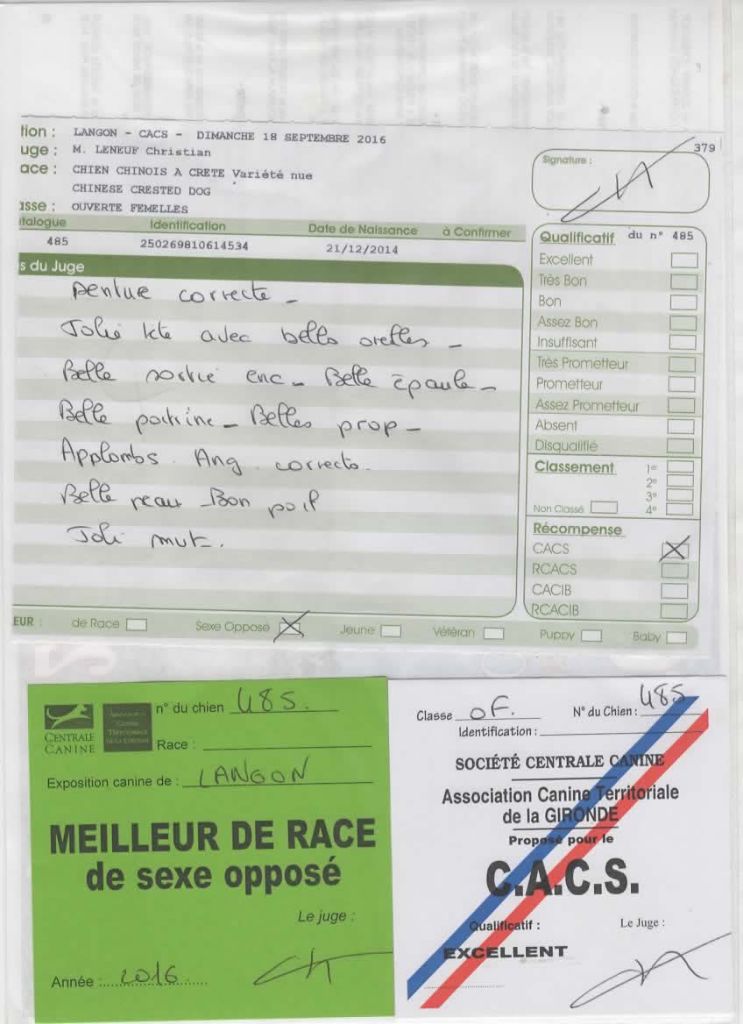 tion : LANGON - CACS - DIMANCHE 18 SEPTEMBRE 2016
379
uge : M. LENEUF Christian
ace : CHIEN CHINOIS A CRETE Variété nue
CHINESE CRESTED DOG
asse : OUVERTE FEMELLES
Signature :
talogue Identification Date de Naissance à Confirmer
485 250269810614534 21/12/2014
s du Juge
Denture correcte -
Jolie tête avec belles oreilles -
Belle sortie enc - Belle épaule -
Belle poitrine - Belles prop -
Applombs. Ang. correcte.
Belle peau - Bon poil
Joli mut.
Qualificatif du n° 485
Excellent
Très Bon
Bon
Assez Bon
Insuffisant
Très Prometteur
Prometteur
Assez Prometteur
Absent
Disqualifié
Classement 1e
2e
3e
Non Classé 4e
Récompense
CACS X
RCACS
CACIB
RCACIB
EUR : de Race Sexe Opposé X Jeune Vétéran Puppy Baby
CENTRALE
CANINE
n° du chien 485.
Race :
Exposition canine de : LANGON
MEILLEUR DE RACE
de sexe opposé
Le juge :
Année : 2016
Classe OF. N° du Chien : 485
Identification :
SOCIÉTÉ CENTRALE CANINE
Association Canine Territoriale
de la GIRONDE
Proposé pour le
C.A.C.S.
Qualificatif : Le Juge :
EXCELLENT